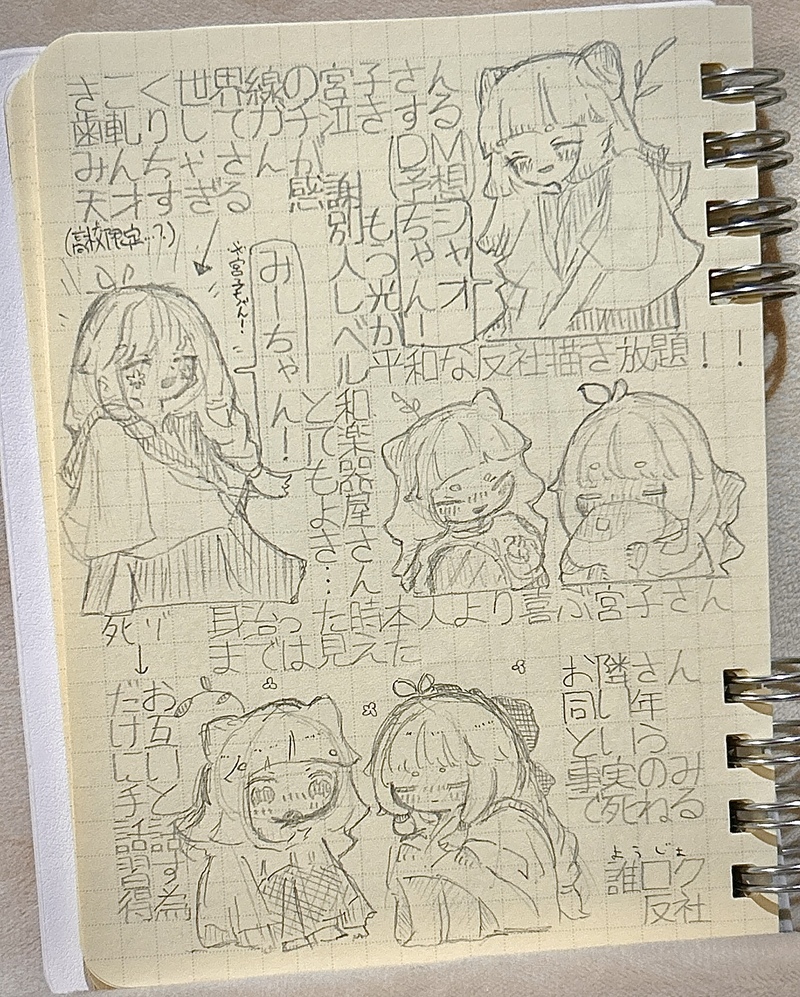 さこく世界線の宮子さん
歯軋りしてガチ泣きする
みんちゃさんが
天才すぎる
(高校限定…?)
感謝
(DM予想)
シャオちゃん!
もっ光か
別人レベル
みーちゃん!
宮子ちゃん!
平和な反社描き放題!!
和楽器屋さん
とてもよき…
身台った時本人より喜ぶ宮子さん
までは見えた
死ゾ↓
お互いと話す為
だけに手話習得
お隣さん
同い年
という
事実のみ
で死ねる
ようじょ
誰ロク
反社